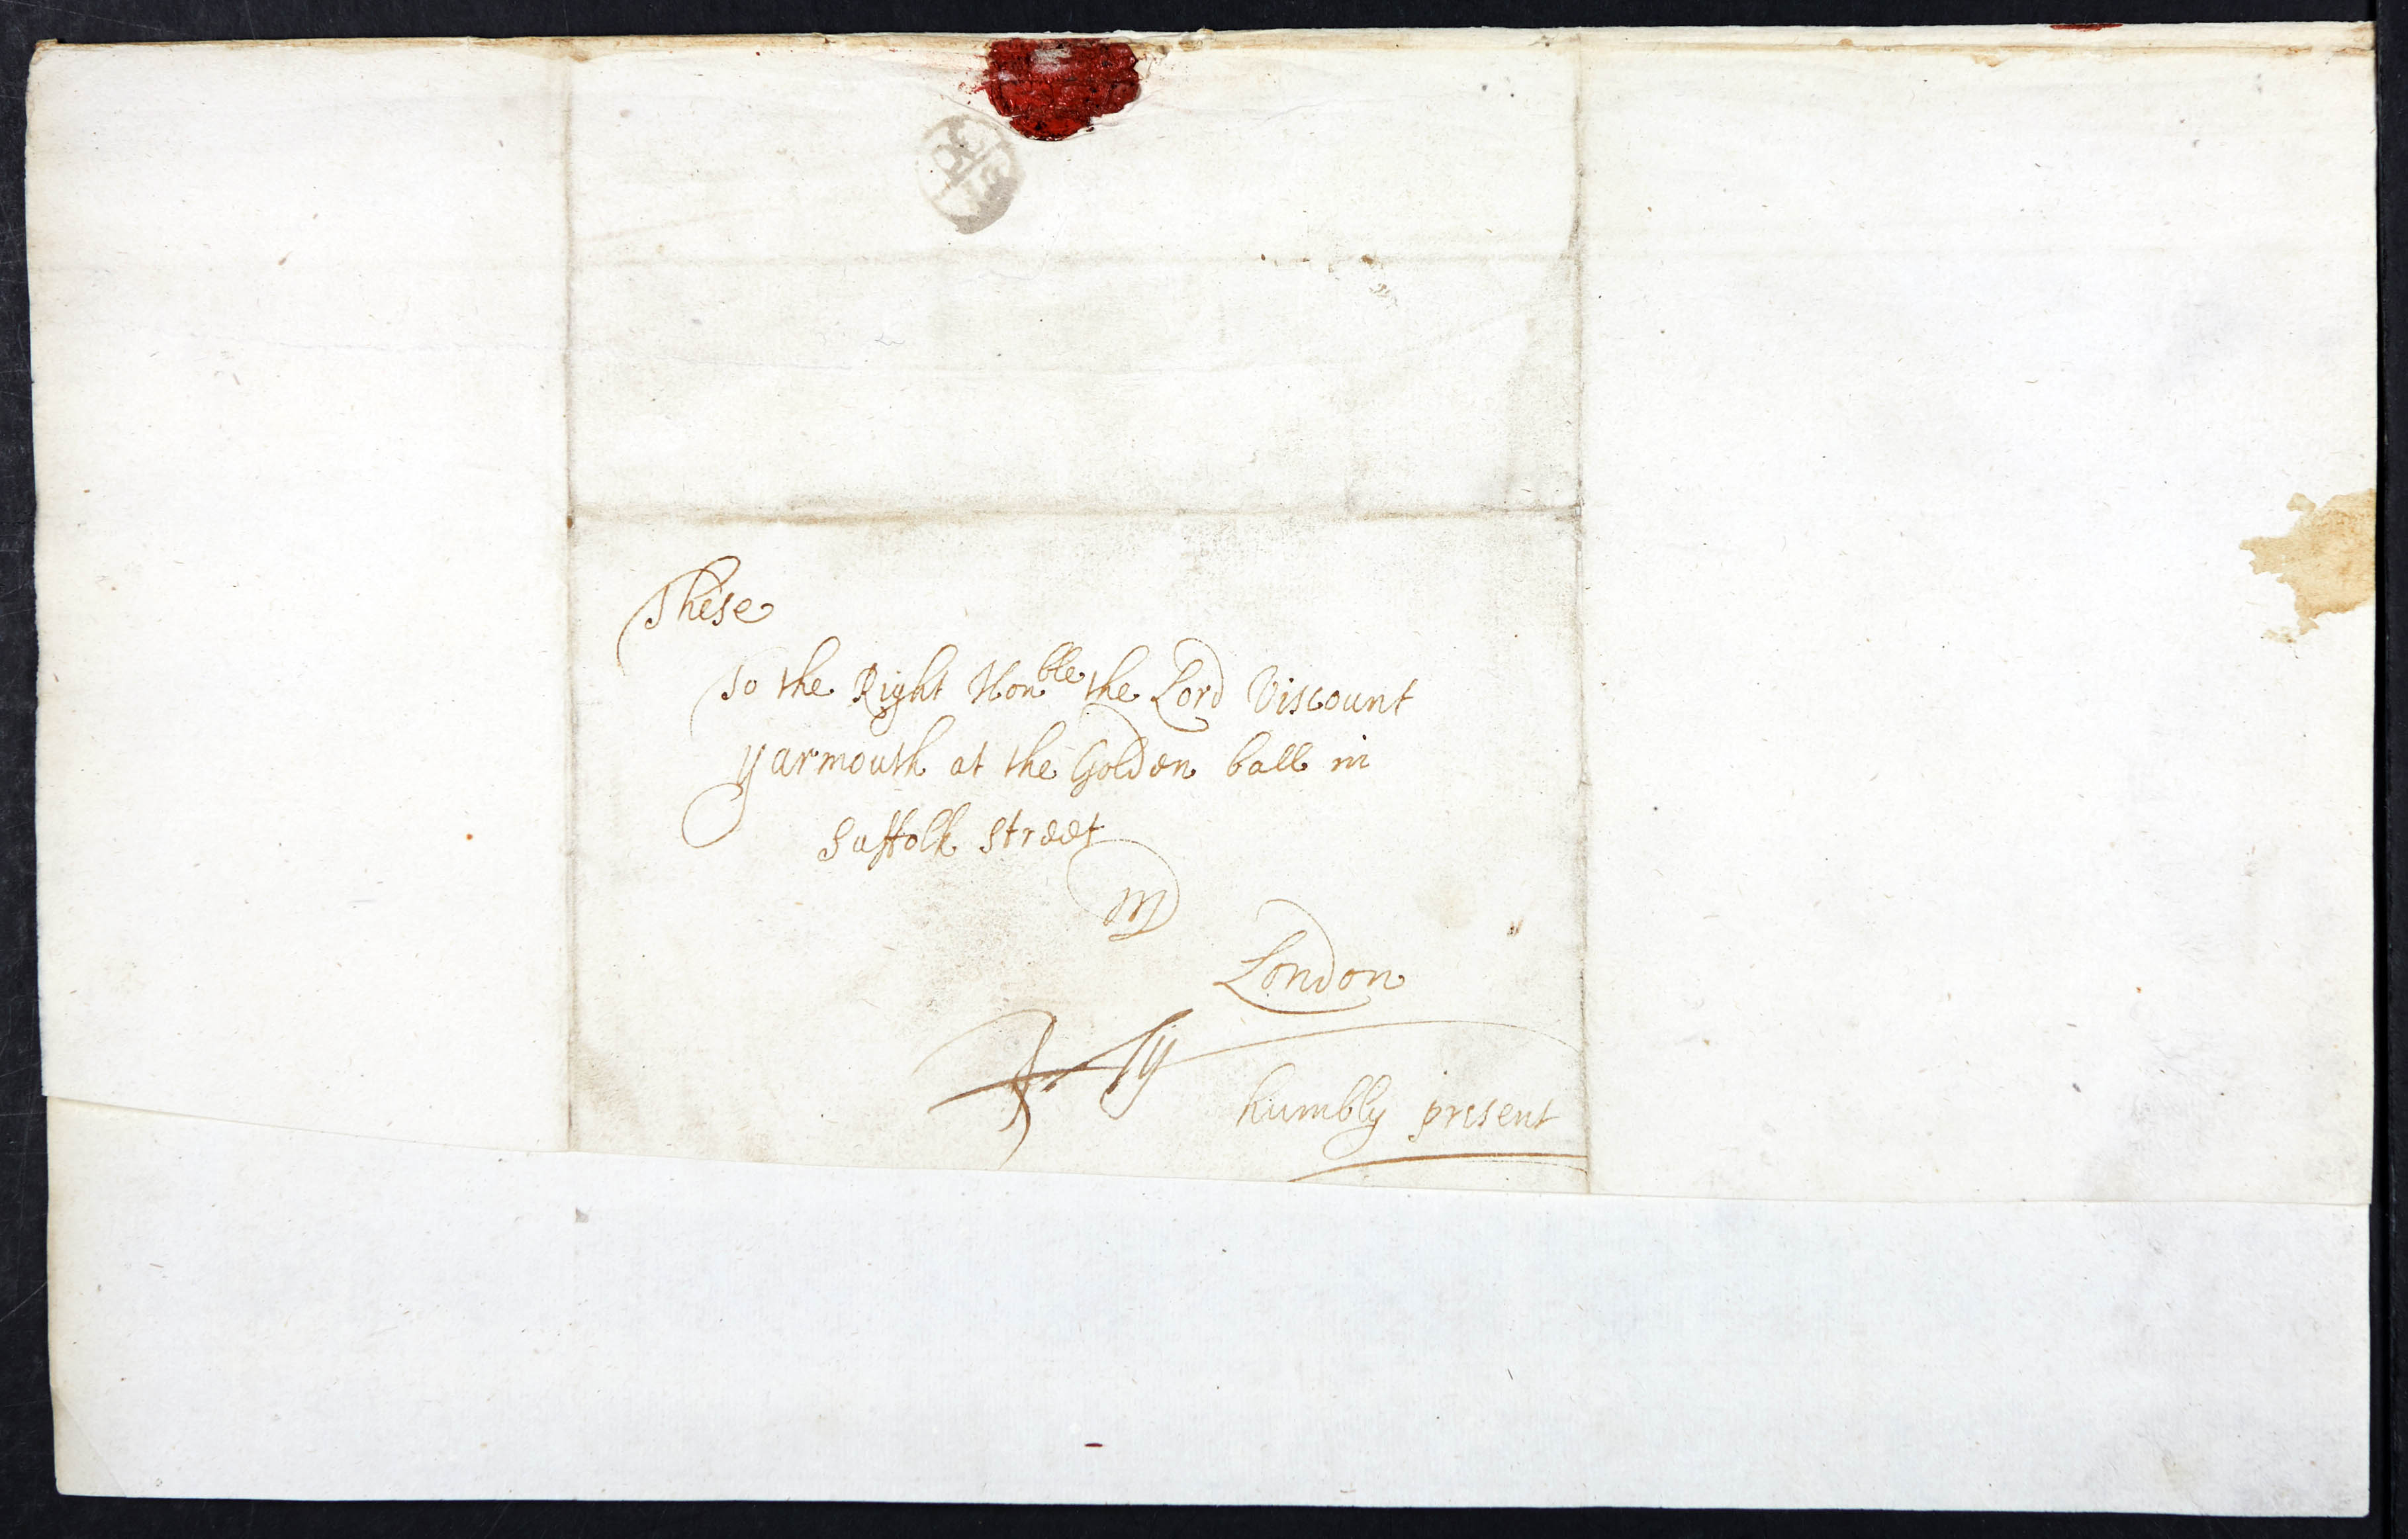 These
To the Right Hon^ble the Lord Viscount
yarmouth at the Golden ball in
Suffolk street
in
London
humbly present